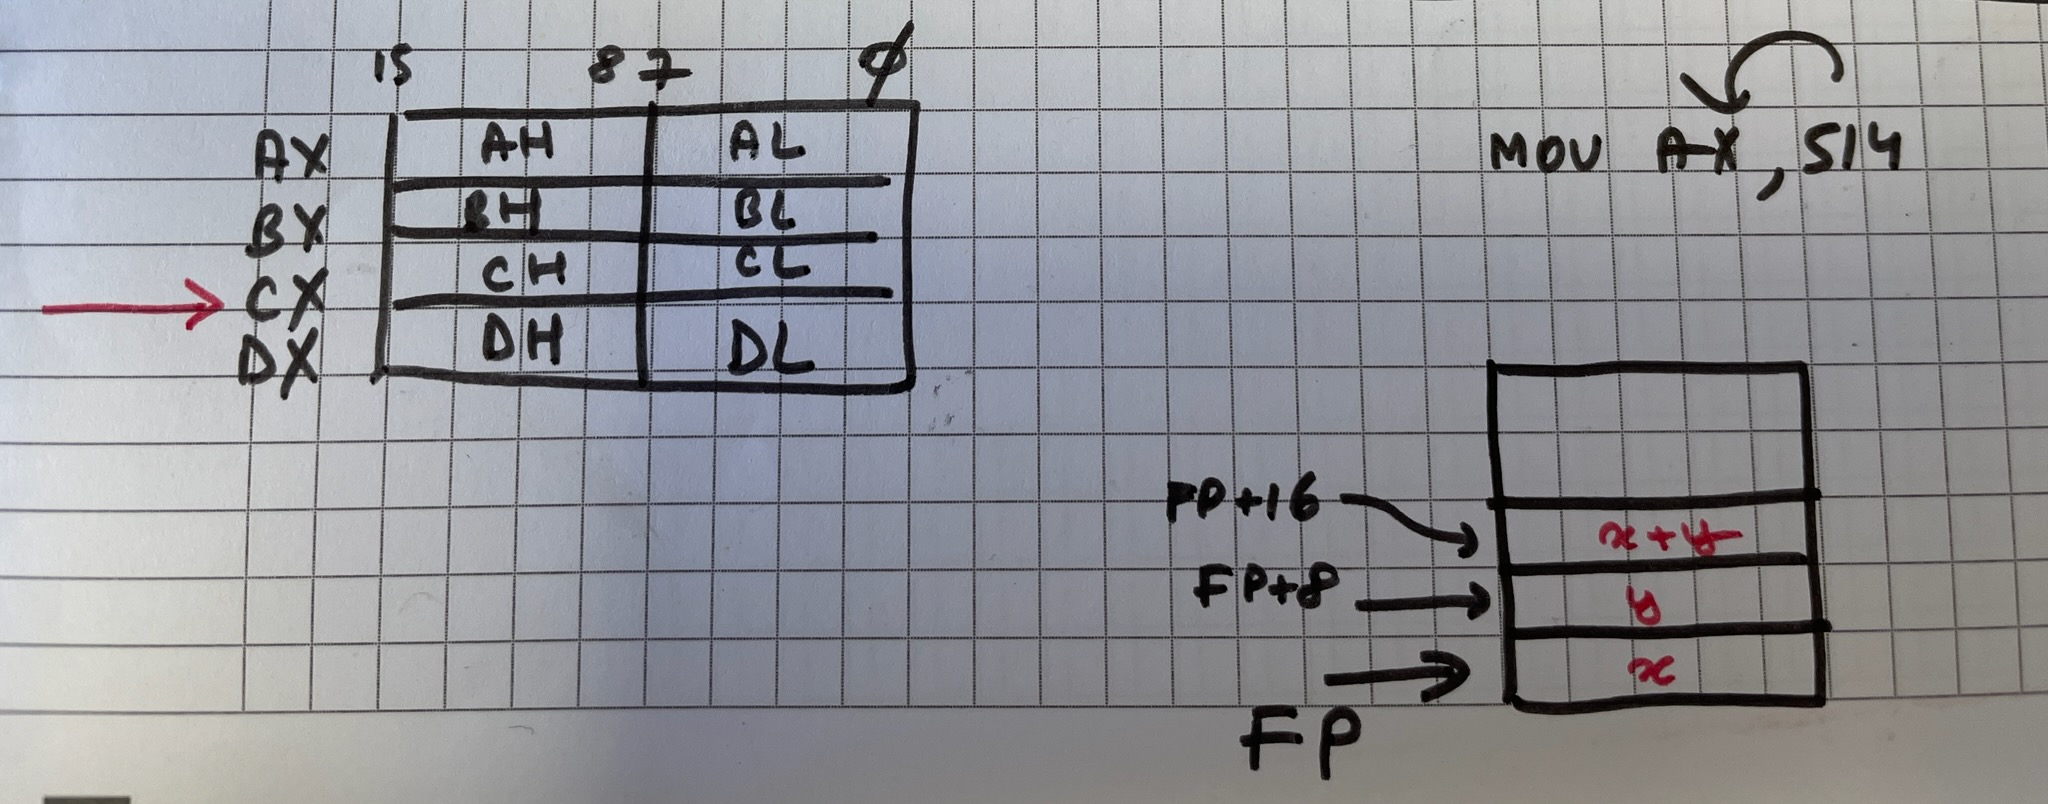 15 8 7 0
AX AH AL
BX BH BL
CX CH CL
DX DH DL
MOV AX, 514
FP+16 x+y
FP+8 y
FP x